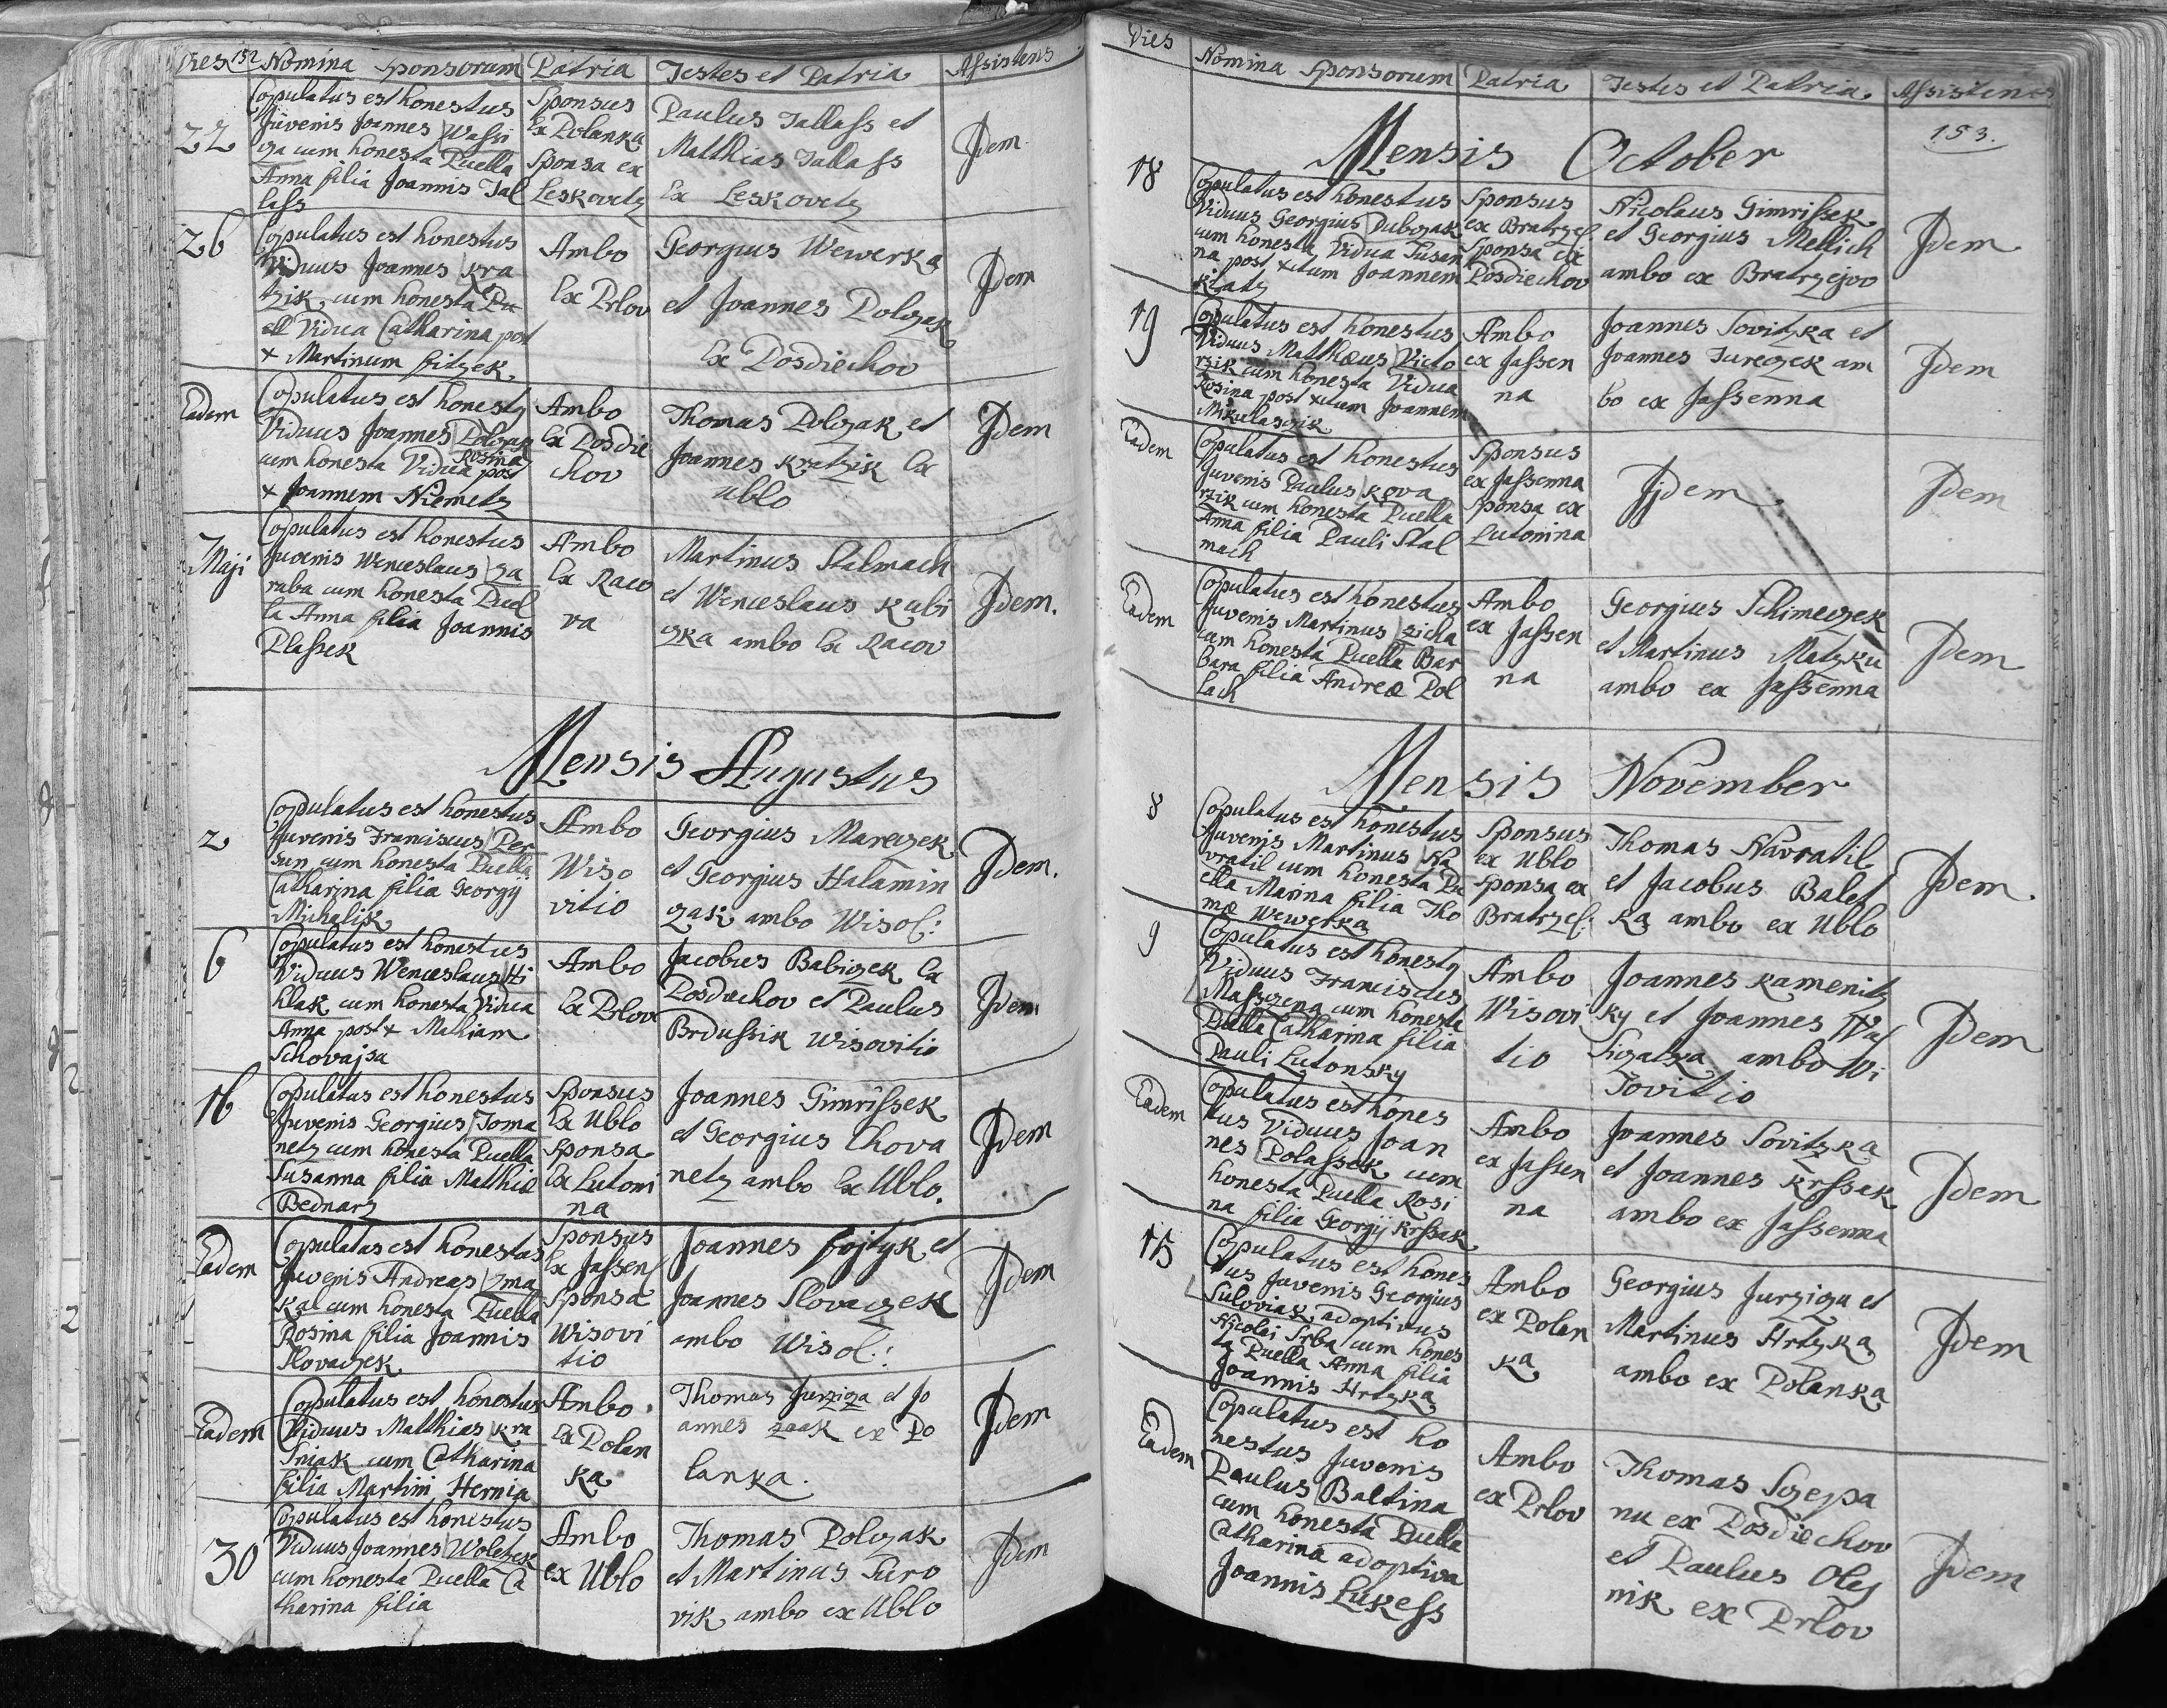 Dies 152 Nomina Sponsorum Patria Testes et Patria Assistens
22
Copulatus est honestus
Juvenis Joannes Wassi
cza cum honesta Puella
Anna filia Joannis Tal
lass
Sponsus
Ex Polanka
Sponsa ex
Leskovetz
Paulus Tallass et
Matthias Tallass
Ex Leskovetz
Jdem
26
Copulatus est honestus
Viduus Joannes Kra
tzik cum honesta Pu
ell Vidua Catharina post
+ Martinum fitzek
Ambo
Ex Prlov
Georgius Wewerka
et Joannes Polczak
Ex Posdiechov
Jdem
Eadem
Copulatus est honesty
Viduus Joannes Polczak
cum honesta Vidua Rosina post
+ Joannem Niemetz
Ambo
Ex Posdie
chov
Thomas Polczak et
Joannes Kratzik Ex
Ublo
Jdem
7 Maji
Copulatus est honestus
Juvenis Wenceslaus Za
ruba cum honesta Puel
la Anna filia Joannis
Plassek
Ambo
Ex Raco
va
Martinus Stalmach
et Wenceslaus Kubi
czka ambo Ex Racov
Jdem.
Mensis Augustus
2
Copulatus est honestus
Juvenis Franciscus Per
sun cum honesta Puella
Catharina filia Georgij
Michalik
Ambo
Wiso
vitio
Georgius Mareczek
et Georgius Halamin
czak ambo Wisof:
Jdem.
6
Copulatus est honestus
Viduus Wenceslaus Hi
hlak cum honesta Vidua
Anna post + Mathiam
Schovajsa
Ambo
Ex Prlov
Jacobus Babiczek Ex
Posdiechov et Paulus
Brdussik Wisovitio
Jdem
16
Copulatus est honestus
Juvenis Georgius Toma
netz cum honesta Puella
Susanna filia Matthiæ
Bednarz
Sponsus
Ex Ublo
Sponsa
Ex Lutoni
na
Joannes Gimrissek
et Georgius Chova
netz ambo Ex Ublo.
Jdem
Eadem
Copulatus est honestus
Juvenis Andreas Zma
kal cum honesta Puella
Rosina filia Joannis
Slovaczek
Sponsus
Ex Jassen
Sponsa
Wisovi
tio
Joannes fojtyk et
Joannes Slovaczek
ambo Wisof:
Jdem
Eadem
Copulatus est honestus
Viduus Matthias Kra
sniak cum Catharina
filia Martini Hernia
Ambo
Ex Polan
ka
Thomas Jurziga et Jo
annes zaak ex Po
lanka.
Jdem
30
Copulatus est honestus
Viduus Joannes Woletzek
cum honesta Puella Ca
tharina filia
Ambo
ex Ublo
Thomas Polczak
et Martinus Suro
vik ambo ex Ublo
Jdem
Dies Nomina Sponsorum Patria Testes et Patria Assistens
153.
Mensis October
18
Copulatus est honestus
Viduus Georgius Dubczak
cum honesta Vidua Susan
na post +ctum Joannem
Klatz
Sponsus
ex Bratrzef
Sponsa ex
Posdiechov
Nicolaus Gimrissek
et Georgius Mellich
ambo ex Bratrzejov
Jdem
19
Copulatus est honestus
Viduus Matthæus Victo
rzik cum honesta Vidua
Rosina post +ctum Joannem
Mikulaszik
Ambo
ex Jassen
na
Joannes Sovitzka et
Joannes Jureczek am
bo ex Jassenna
Jdem
Eadem
Copulatus est honestus
Juvenis Paulus Kova
rzik cum honesta Puella
Anna filia Pauli Stal
mach
Sponsus
ex Jassenna
Sponsa ex
Lutonina
Jjdem
Jdem
Eadem
Copulatus est honestus
Juvenis Martinus zicha
cum honesta Puella Bar
bara filia Andreæ Pol
lach
Ambo
ex Jassen
na
Georgius Schimeczek
et Martinus Matzku
ambo ex Jassenna
Jdem
Mensis November
8
Copulatus est honestus
Juvenis Martinus Na
vratil cum honesta Pu
ella Marina filia Tho
mæ Wewerka
Sponsus
ex Ublo
Sponsa ex
Bratrzef:
Thomas Navratil
et Jacobus Balet
ka ambo ex Ublo
Jdem.
9
Copulatus est honesty
Viduus Franciscus
Masczena cum honesta
Puella Catharina filia
Pauli Lutonsky
Ambo
Wisovi
tio
Joannes Kamenitz
ky et Joannes Wa
siczatka ambo Wi
sovitio
Jdem
Eadem
Copulatus est hones
tus Viduus Joan
nes Polassek cum
honesta Puella Rosi
na filia Georgij Krssak
Ambo
ex Jassen
na
Joannes Sovitzka
et Joannes Krssak
ambo ex Jassenna
Jdem
15
Copulatus est hones
tus Juvenis Georgius
Suloviak adoptivus
Nicolai Srba cum hones
ta Puella Anna filia
Joannis Hrtzka
Ambo
ex Polan
ka
Georgius Jurziga et
Martinus Hrtzka
ambo ex Polanka
Jdem
Eadem
Copulatus est ho
nestus Juvenis
Paulus Baltina
cum honesta Puella
Catharina adoptiva
Joannis Lukess
Ambo
ex Prlov
Thomas Sczepa
nu ex Posdiechov
et Paulus Oley
nik ex Prlov
Jdem